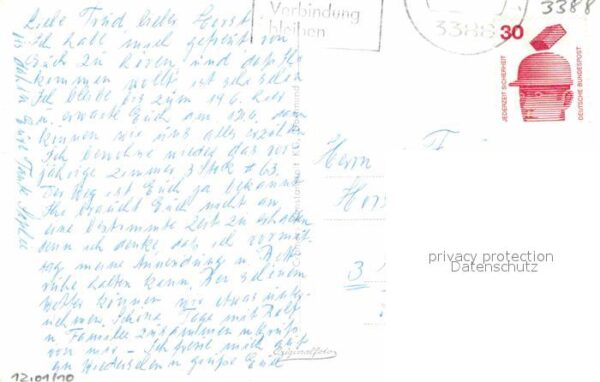 Liebe Trud lieber Horst
Ich hab mich gefreut von
Euch zu hören und daß Ihr
kommen wollt ist sehr schön
Ich bleibe bis zum 19.6. hier
u. erwarte Euch am 17.6. dann
können wir uns alles erzählen
Ich bewohne wieder das vor
jährige Zimmer 3 Stock # 63.
Der Weg ist Euch ja bekannt
Ihr braucht Euch nicht an
eine bestimmte Zeit zu halten
denn ich denke das ich vormit-
tag meine Anwendung u. Bett-
ruhe halten kann. Bei schönem
Wetter können wir etwas unter-
nehmen. Schöne Tage mit Rolf
u. Familie zusammen u. Grüße
von mir - Ich freue mich auf
ein Wiedersehen u. grüße Euch
bis dahin Eure Tante Sophie
Verbindung
bleiben
3388
3388
30
JEDERZEIT SICHERHEIT
DEUTSCHE BUNDESPOST
Herrn
3
privacy protection
Datenschutz
Originalfoto
12.01/10